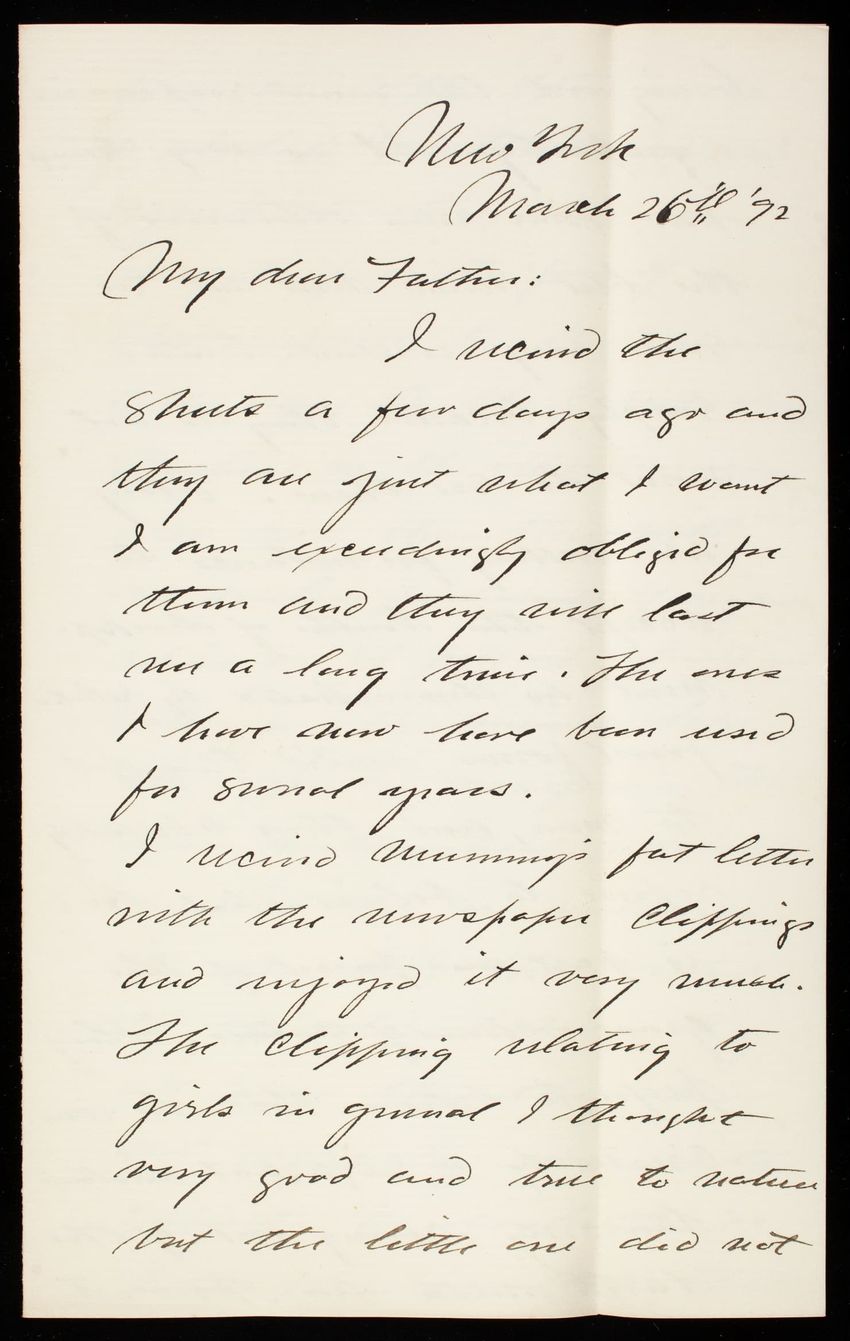 New York
March 26th '92
My dear Father:
I received the
sheets a few days ago and
they are just what I want
I am exceedingly obliged for
them and they will last
me a long time. The ones
I have now have been used
for several years.
I received Mummy's fat letter
with the newspaper clippings
and enjoyed it very much.
The clipping relating to
girls in general I thought
very good and true to nature
but the little one did not